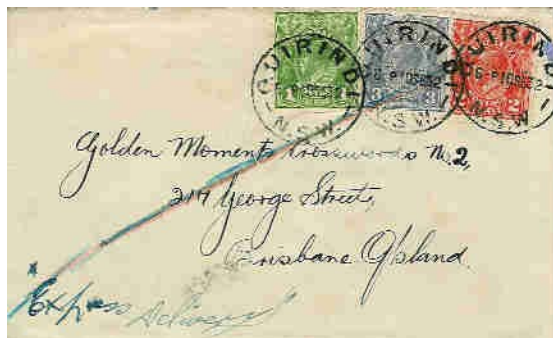 QUIRINDI QUIRINDI QUIRINDI
1 3 3 2
N.S.W. S.W. N.S.W.
Golden Moments Crosswords No. 2,
217 George Street,
Brisbane Q'sland.
"Express delivery"